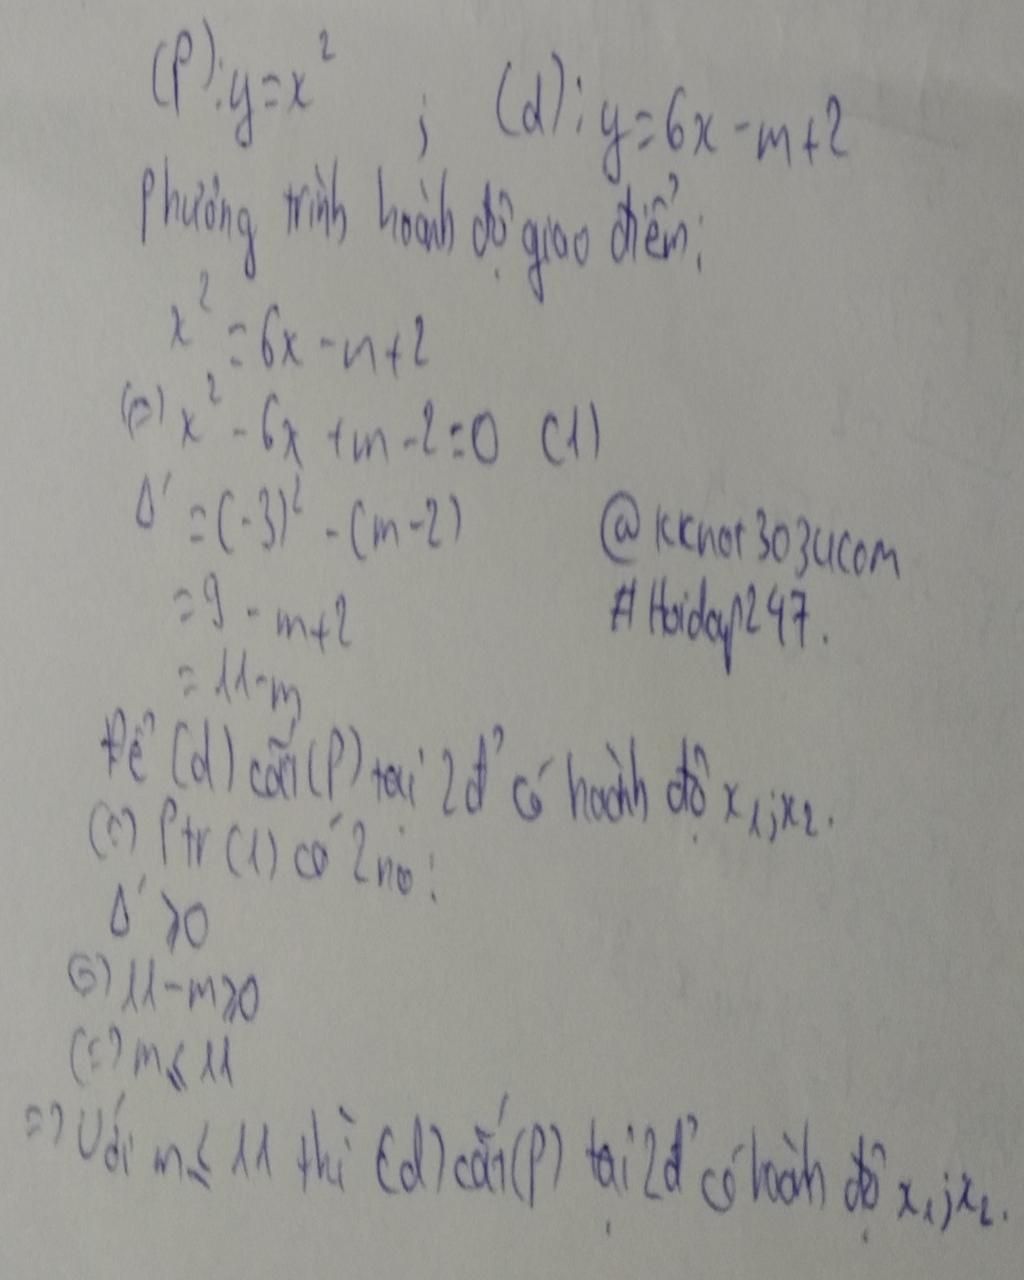 (P): y=x² ; (d): y=6x-m+2
Phương trình hoành độ giao điểm:
x² = 6x-m+2
(=) x² - 6x + m - 2 = 0 (1)
Δ' = (-3)² - (m-2)
= 9 - m+2
= 11-m
@kknot3034com
#Hoidap247.
Để (d) cắt (P) tại 2đ' có hoành độ x₁; x₂.
(=) Ptr (1) có 2 no:
Δ' ≥ 0
(=) 11-m ≥ 0
(=) m ≤ 11
=> Với m ≤ 11 thì (d) cắt (P) tại 2đ' có hoành độ x₁; x₂.